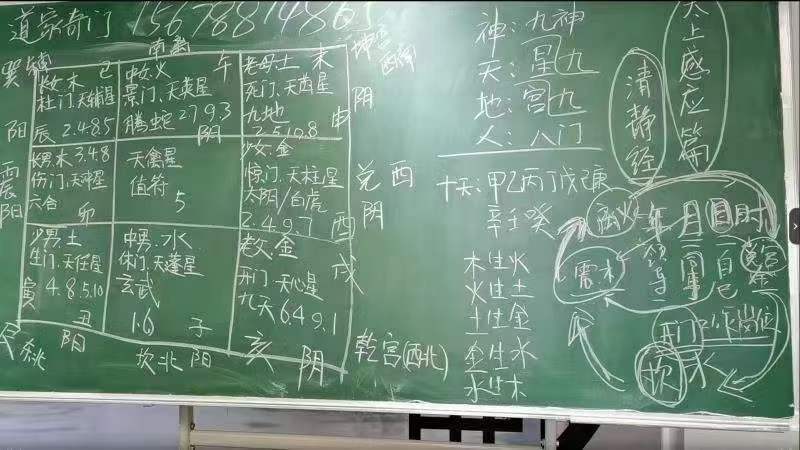 道家奇门
南离
巽宫
坤宫
西南
长女木 巳
杜门、天辅星
辰 2.4.8.5
中女火 午
景门、天英星
腾蛇 2793
老母土 未
死门、天芮星
九地
2.5.10.8
申
阴
阳
阴
震
阳
长男木 3.4.8
伤门、天冲星
六合
卯
天禽星
值符
5
少女金
惊门、天柱星
太阴/白虎
2.4.9.7
兑 西
阴
酉
少男土
生门、天任星
4.8.5.10
寅
丑
中男、水
休门、天蓬星
玄武
1.6 子
老父金
开门、天心星
九天 6.4.9.1
戌
阳
坎北阳
亥 阴
乾宫(西北)
神:九神
天:星九
地:宫九
人:八门
清静经
太上感应篇
十天:甲乙丙丁戊
辛壬癸
木生火
火生土
土生金
金生水
水生木
离火 年 月 日 时
领导 同事 自己
开门
坎 水